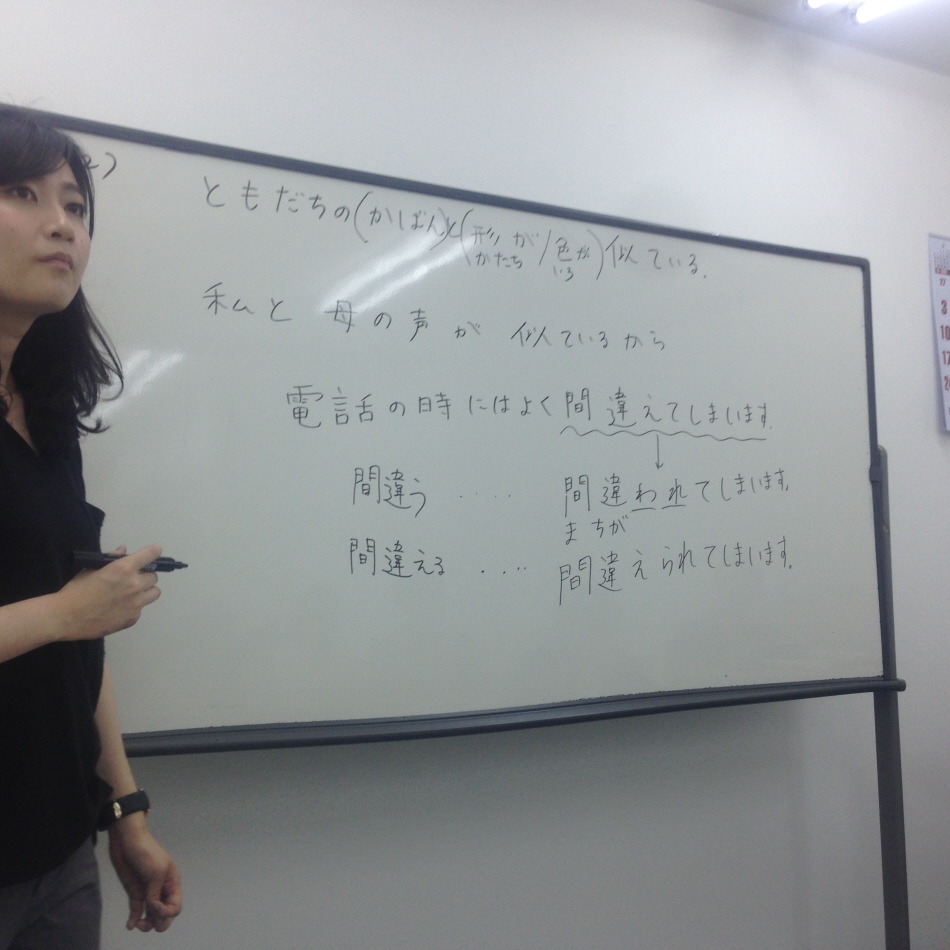 2)
ともだちの(かばん)と(形が/色が)似ている.
かたち いろ
私と 母の声が 似ているから
電話の時にはよく間違えてしまいます.
間違う ・・・・ 間違われてしまいます.
まちが
間違える ・・・・ 間違えられてしまいます.
3
10
17